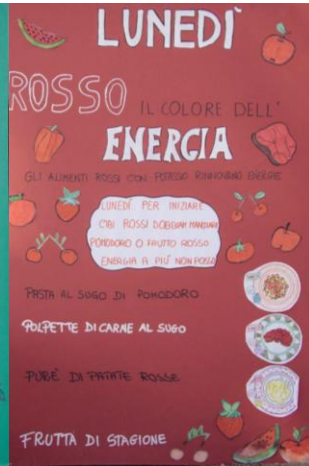 LUNEDÌ
ROSSO IL COLORE DELL'
ENERGIA
GLI ALIMENTI ROSSI CON POTASSIO RINNOVANO ENERGIE
LUNEDÌ PER INIZIARE
CIBI ROSSI DOBBIAM MANGIARE
POMODORO O FRUTTO ROSSO
ENERGIA A PIÙ NON POSSO
PASTA AL SUGO DI POMODORO
POLPETTE DI CARNE AL SUGO
PURÈ DI PATATE ROSSE
FRUTTA DI STAGIONE